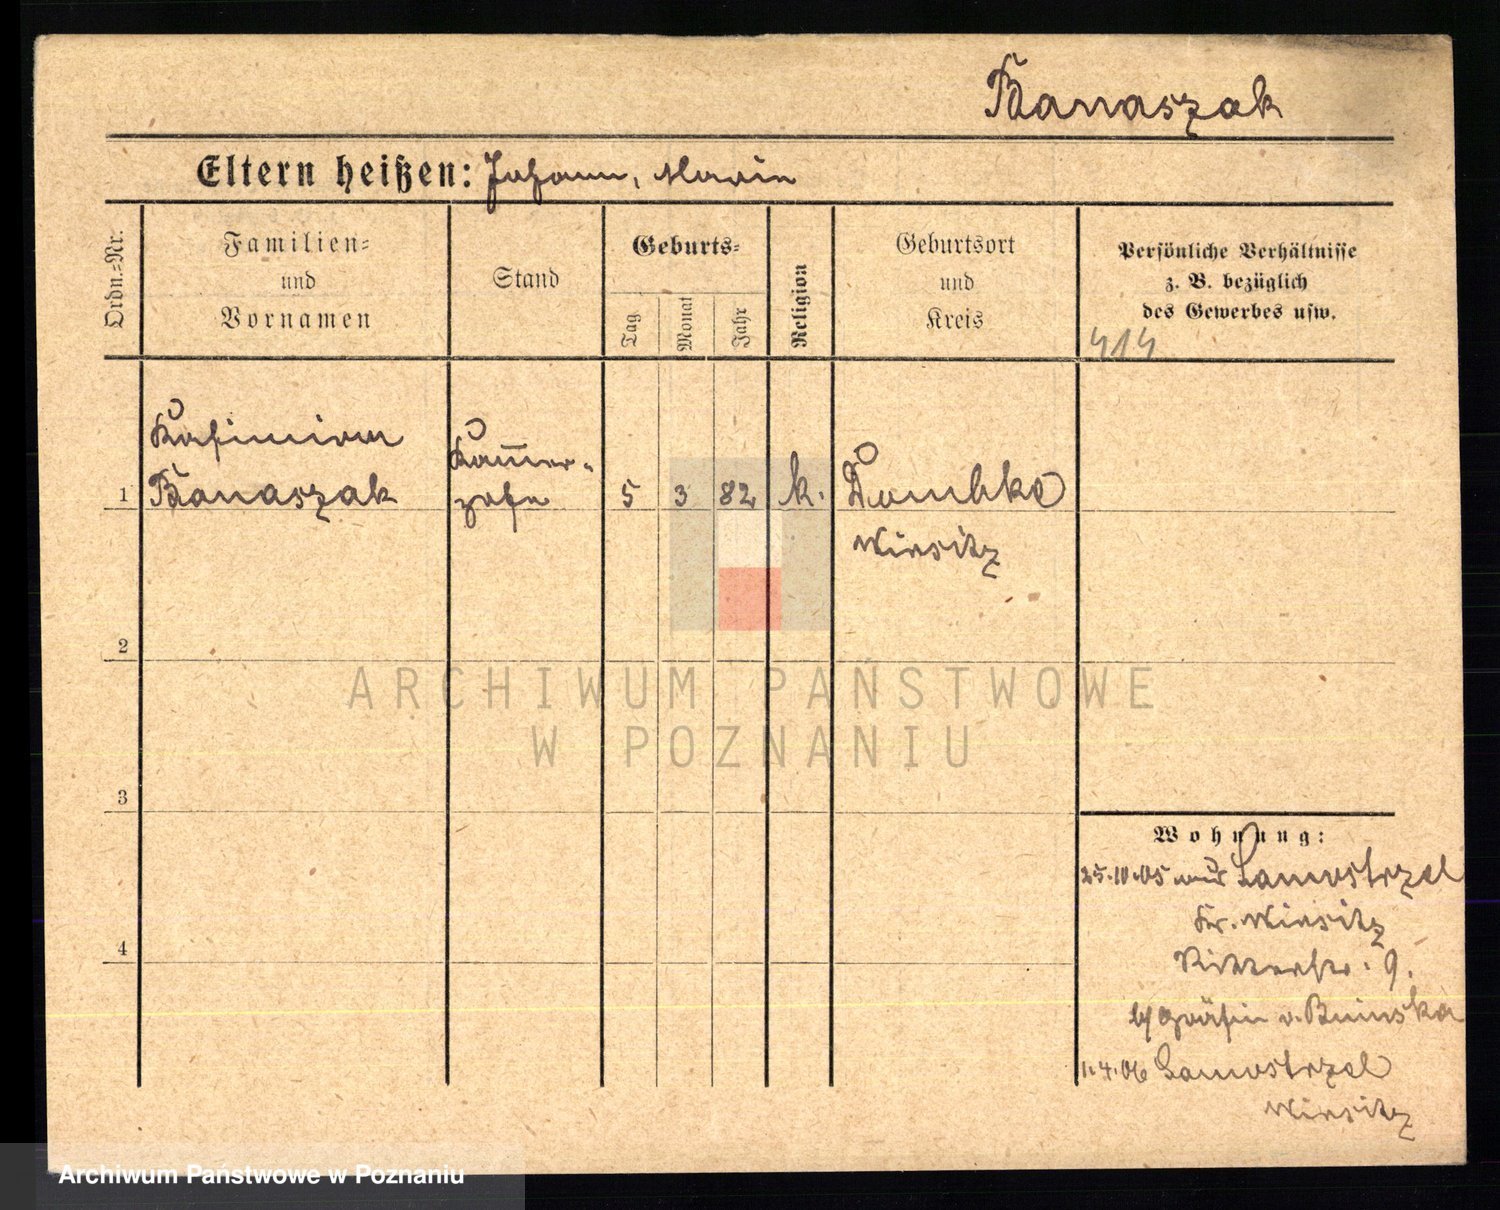 Banaszak
Eltern heißen: Johann, Marie
Ordn.=Nr.
Familien=
und
Vornamen
Stand
Geburts=
Tag
Monat
Jahr
Religion
Geburtsort
und
Kreis
Persönliche Verhältnisse
z. B. bezüglich
des Gewerbes usw.
414
Kasimiera
Banaszak
Kammer-
zofe
1
5 3 82 k.
Dombke
Wirsitz
2
3
4
Wohnung:
25.10.05 aus Samostrzel
Kr. Wirsitz
Ritterstr. 9.
b/ Gräfin v. Bninska
1.4.06 Samostrzel
Wirsitz
ARCHIWUM PAŃSTWOWE
W POZNANIU
Archiwum Państwowe w Poznaniu